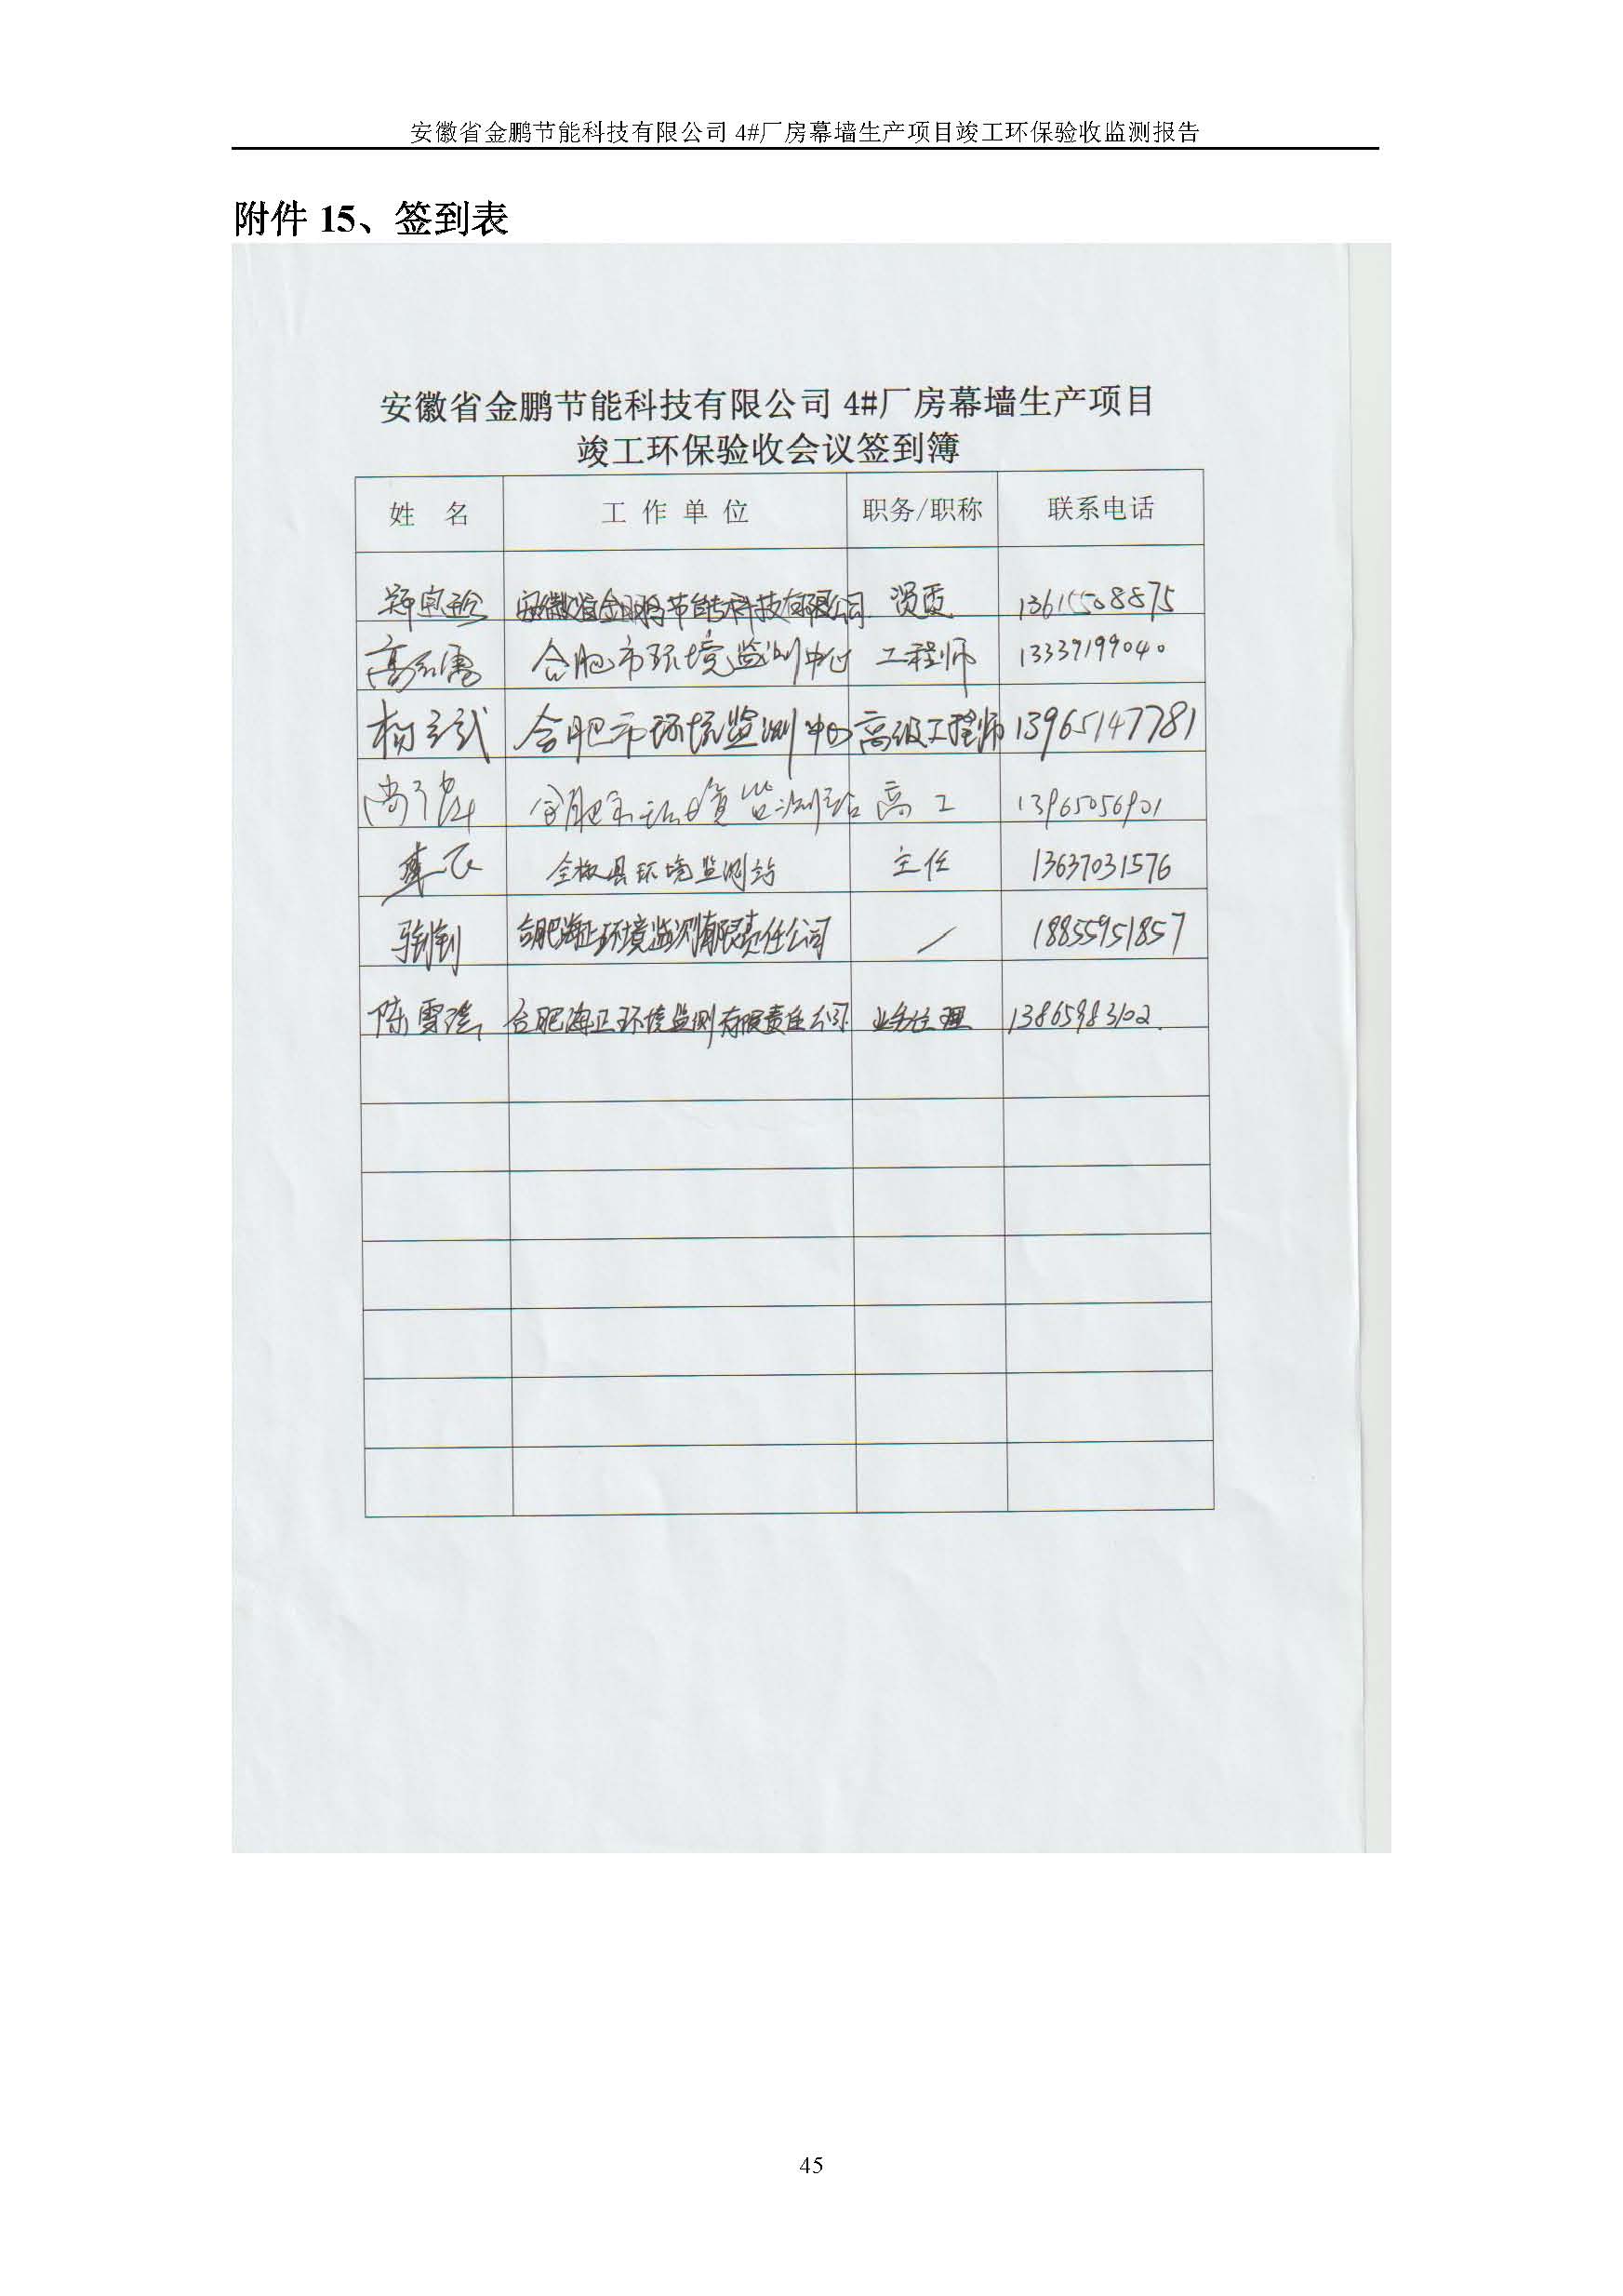 安徽省金鹏节能科技有限公司 4#厂房幕墙生产项目竣工环保验收监测报告
附件 15、签到表
安徽省金鹏节能科技有限公司 4#厂房幕墙生产项目
竣工环保验收会议签到簿
姓 名 工 作 单 位 职务/职称 联系电话
安徽省金鹏节能科技有限公司 13615508875
合肥市环境监测中心 工程师 13339199040
合肥市环境监测中心 高级工程师 13965147781
合肥市环境监测站 高工 13965056901
全椒县环境监测站 主任 13637031576
合肥海正环境监测有限责任公司 / 18855951857
陈雪 合肥海正环境监测有限责任公司 业务经理 13865983102
45